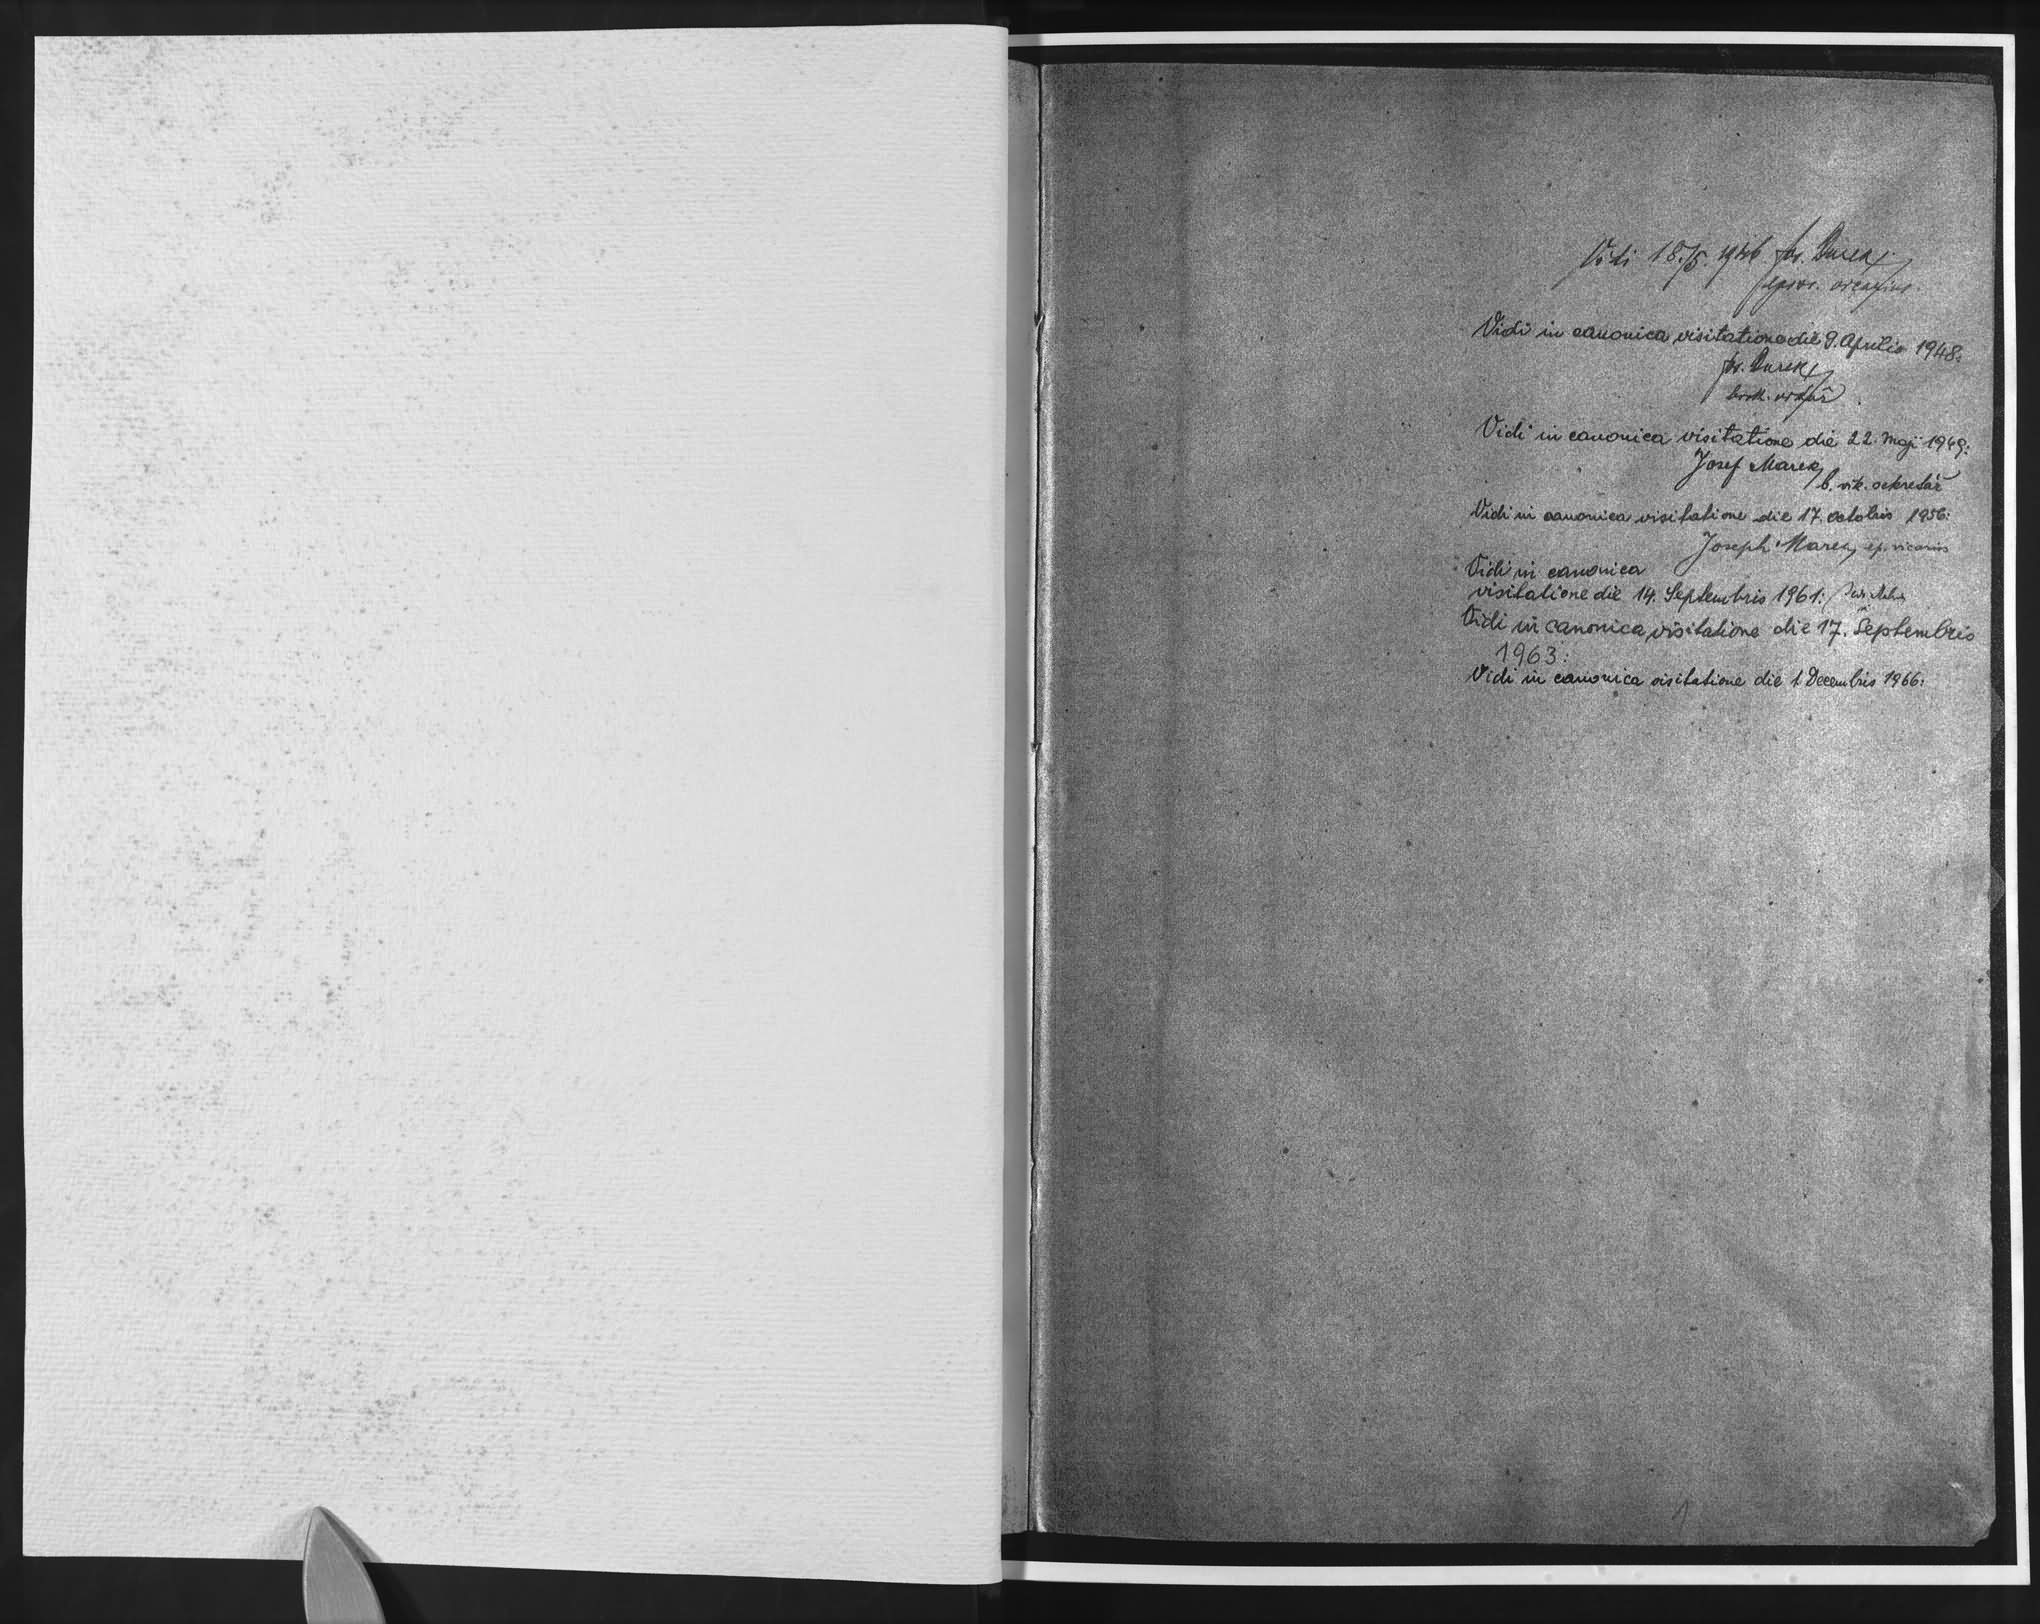 Vidi 18./5. 1946 fr. Durek
Vidi in canonica visitatione die 9. Aprilis 1948:
fr. Durek
bisk. vikář
Vidi in canonica visitatione die 22. Maji 1949:
Josef Marek
b. vik. sekretář
Vidi in canonica visitatione die 17. octobris 1956:
Joseph Marek, ep. vicarius
Vidi in canonica
visitatione die 14. Septembris 1961:
Vidi in canonica visitatione die 17. Septembris
1963:
Vidi in canonica visitatione die 1. Decembris 1966:
1